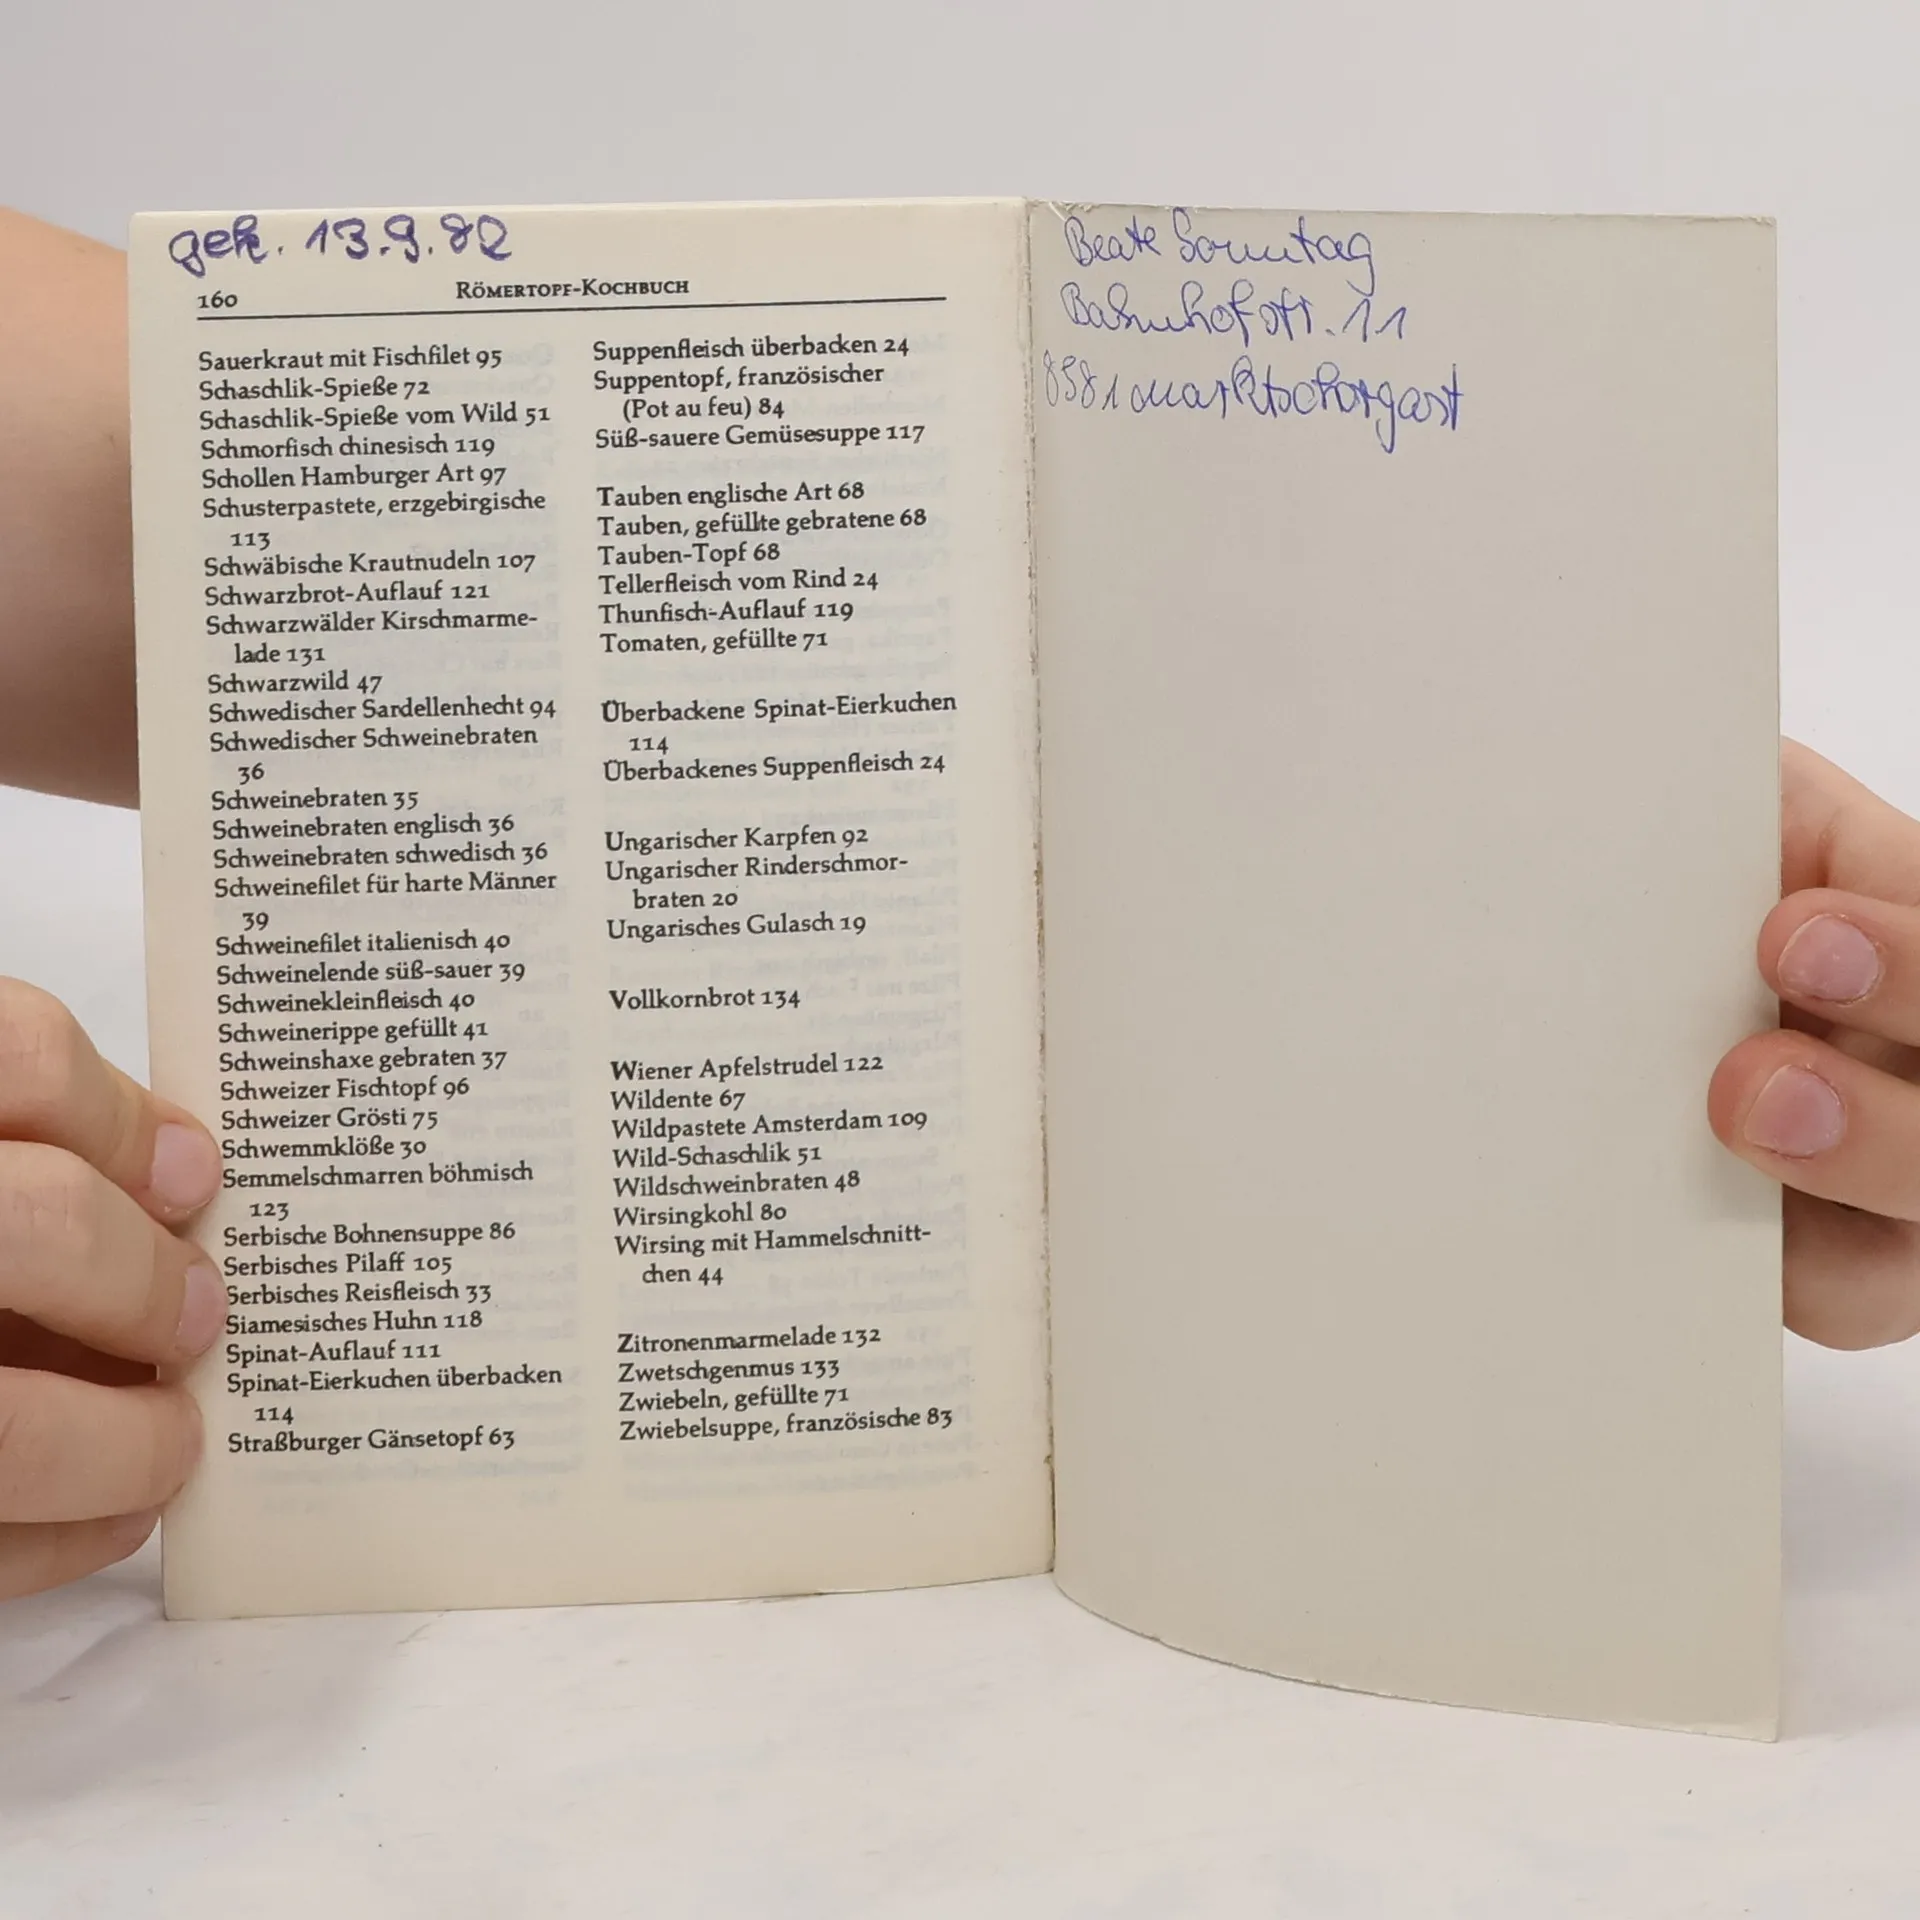 gek. 13.9.82
160 RÖMERTOPF-KOCHBUCH
Sauerkraut mit Fischfilet 95
Schaschlik-Spieße 72
Schaschlik-Spieße vom Wild 51
Schmorfisch chinesisch 119
Schollen Hamburger Art 97
Schusterpastete, erzgebirgische
113
Schwäbische Krautnudeln 107
Schwarzbrot-Auflauf 121
Schwarzwälder Kirschmarme-
lade 131
Schwarzwild 47
Schwedischer Sardellenhecht 94
Schwedischer Schweinebraten
36
Schweinebraten 35
Schweinebraten englisch 36
Schweinebraten schwedisch 36
Schweinefilet für harte Männer
39
Schweinefilet italienisch 40
Schweinelende süß-sauer 39
Schweinekleinfleisch 40
Schweinerippe gefüllt 41
Schweinshaxe gebraten 37
Schweizer Fischtopf 96
Schweizer Grösti 75
Schwemmklöße 30
Semmelschmarren böhmisch
123
Serbische Bohnensuppe 86
Serbisches Pilaff 105
Serbisches Reisfleisch 33
Siamesisches Huhn 118
Spinat-Auflauf 111
Spinat-Eierkuchen überbacken
114
Straßburger Gänsetopf 63
Suppenfleisch überbacken 24
Suppentopf, französischer
(Pot au feu) 84
Süß-sauere Gemüsesuppe 117
Tauben englische Art 68
Tauben, gefüllte gebratene 68
Tauben-Topf 68
Tellerfleisch vom Rind 24
Thunfisch-Auflauf 119
Tomaten, gefüllte 71
Überbackene Spinat-Eierkuchen
114
Überbackenes Suppenfleisch 24
Ungarischer Karpfen 92
Ungarischer Rinderschmor-
braten 20
Ungarisches Gulasch 19
Vollkornbrot 134
Wiener Apfelstrudel 122
Wildente 67
Wildpastete Amsterdam 109
Wild-Schaschlik 51
Wildschweinbraten 48
Wirsingkohl 80
Wirsing mit Hammelschnitt-
chen 44
Zitronenmarmelade 132
Zwetschgenmus 133
Zwiebeln, gefüllte 71
Zwiebelsuppe, französische 83
Beate Sonntag
Bahnhofstr. 11
8581 Marktschorgast